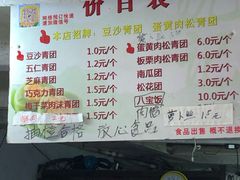 价目表
本店招牌：豆沙青团 蛋黄肉松青团
豆沙青团 1.0元/个
五仁青团 1.2元/个
芝麻青团 1.2元/个
巧克力青团 1.5元/个
梅干菜肉沫青团 1.5元/个
蛋黄肉松青团 6.0元/个
板栗肉松青团 6.0元/个
南瓜团 1.2元/个
松花团 3.0元/个
八宝饭 10.0元
萝卜丝 1.5元
放心食品
食品出售 概不退换